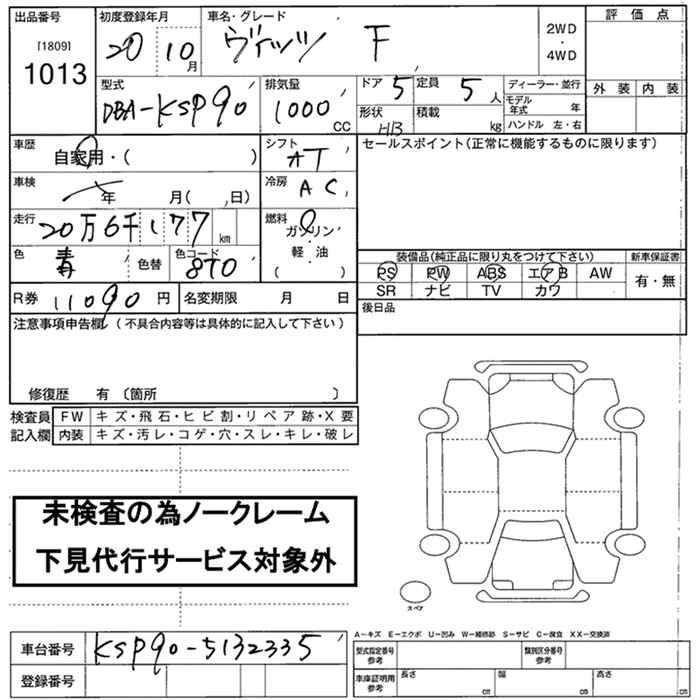 出品番号 初度登録年月 車名・グレード 評価点
[1809] 20 10月 ヴィッツ F 2WD・4WD
1013
型式 排気量 ドア 5 定員 5人 ディーラー・並行 外装 内装
DBA-KSP90 1000CC 形状 H13 積載 kg モデル年式 年
ハンドル 左・右
車歴 自家用・( ) シフト AT セールスポイント(正常に機能するものに限ります)
車検 年 月( , 日) 冷房 AC
走行 20万6千177km 燃料 ガソリン・軽油( )
色 青 色替 色コード 8T0 装備品(純正品に限り丸をつけて下さい) 新車保証書
PS PW ABS エアB AW 有・無
R券 11090円 名変期限 月 日 SR ナビ TV カワ
注意事項申告欄(不具合内容等は具体的に記入して下さい) 後日品
修復歴 有 〔箇所 〕
検査員 FW キズ・飛石・ヒビ割・リペア跡・X要
記入欄 内装 キズ・汚レ・コゲ・穴・スレ・キレ・破レ
未検査の為ノークレーム
下見代行サービス対象外
スペア
A−キズ E−エクボ U−凹み W−補修跡 S−サビ C−腐食 XX−交換済
車台番号 KSP90-5132335 型式指定番号 参考 類別区分番号 参考
登録番号 車庫証明用 参考 長さ cm 幅 cm 高さ cm